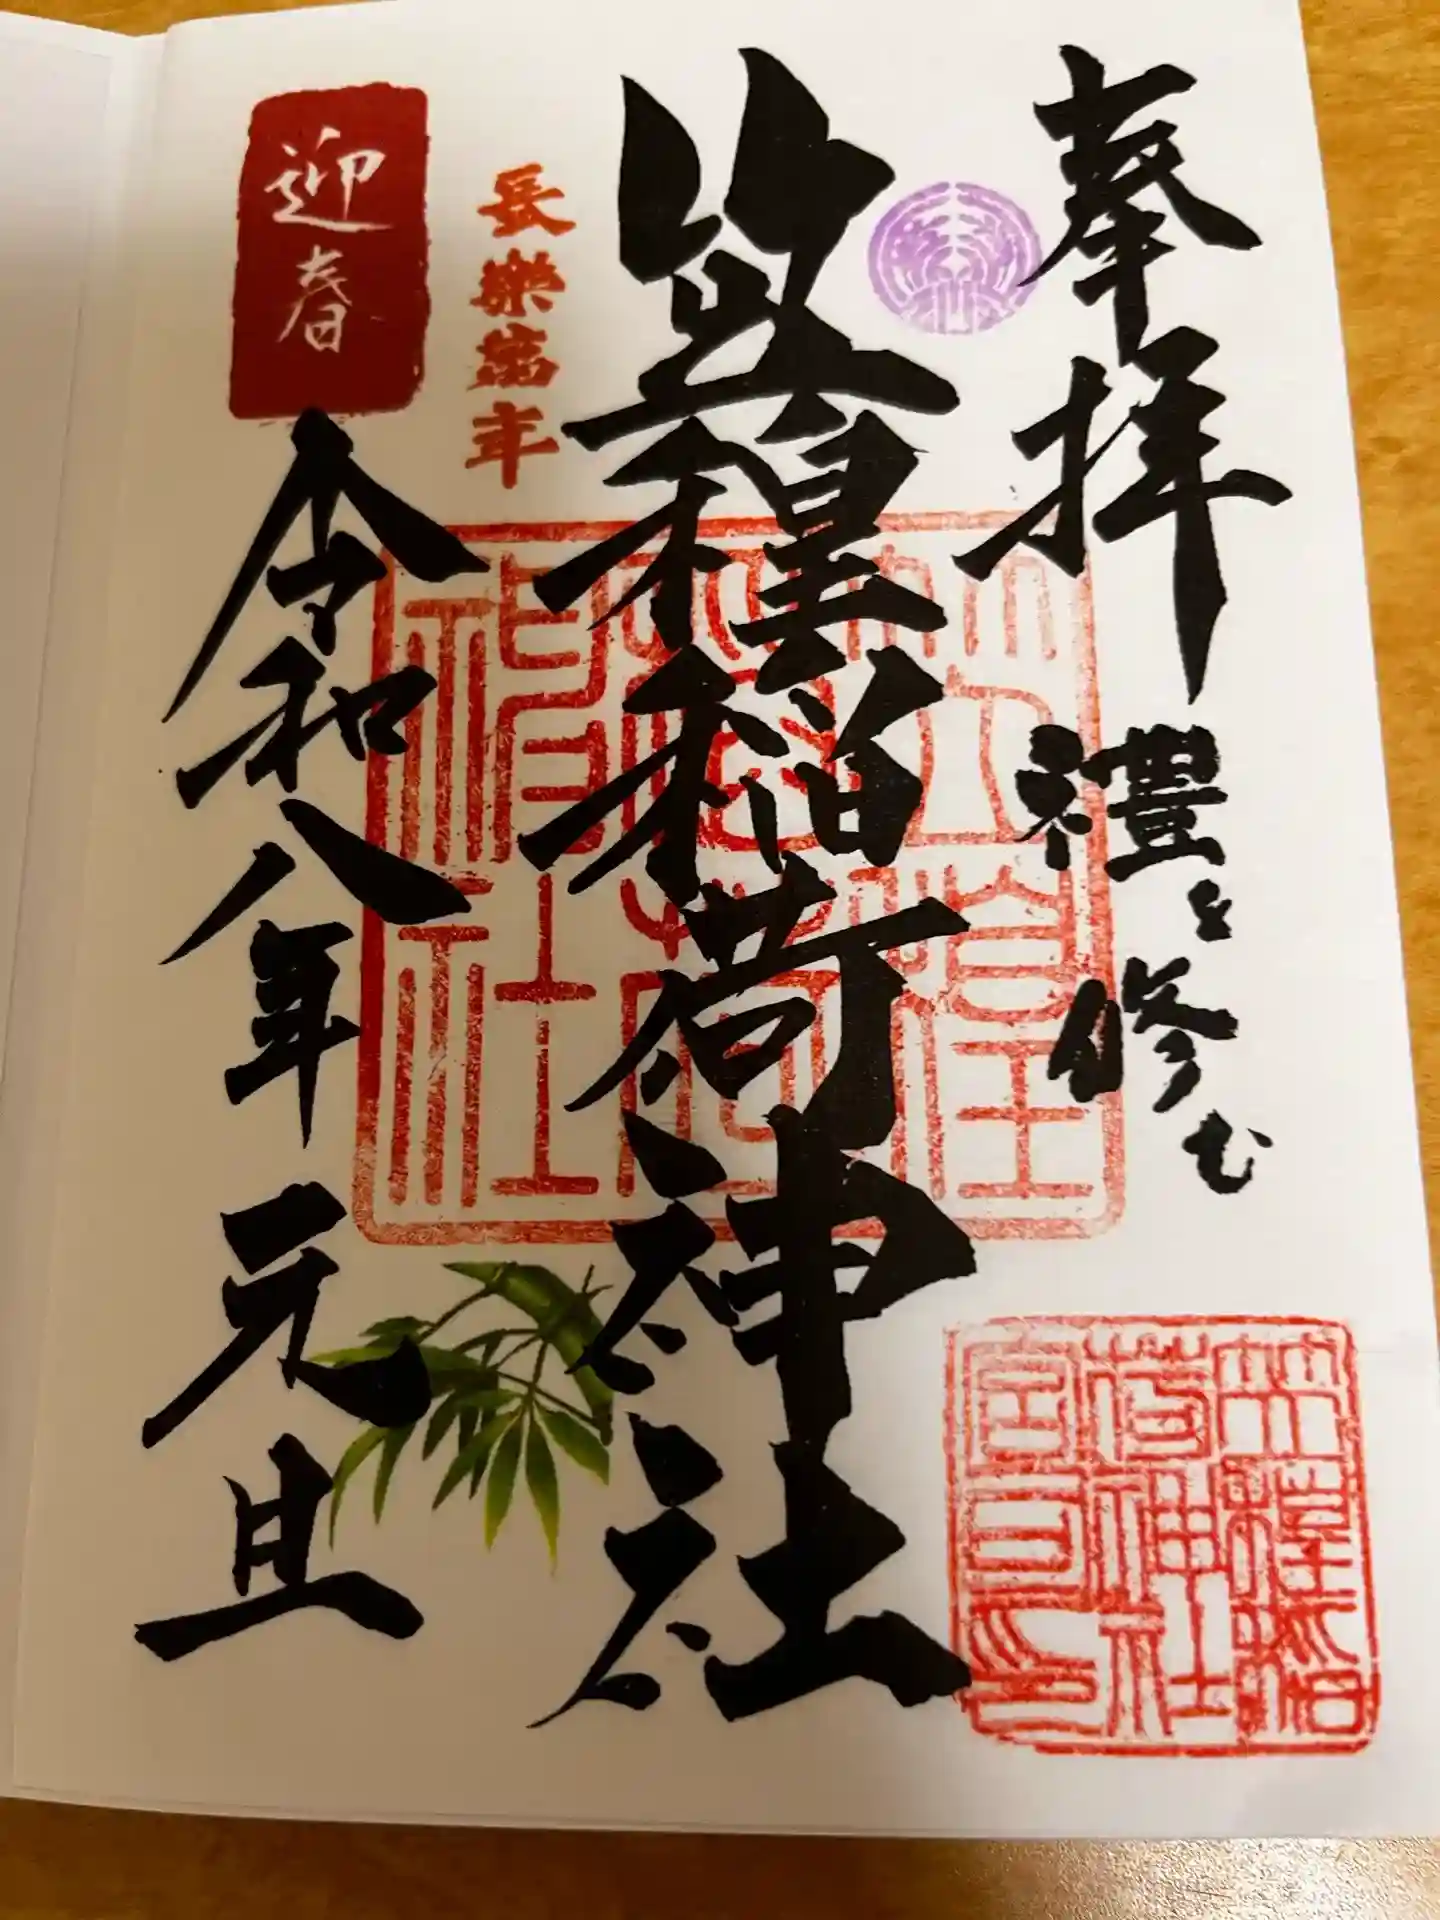 奉拝 禮を修む
笠䅣稲荷神社
長樂萬年
迎春
令和八年 元旦
笠䅣
稲荷
神社
笠䅣稲
荷神社
宮司印